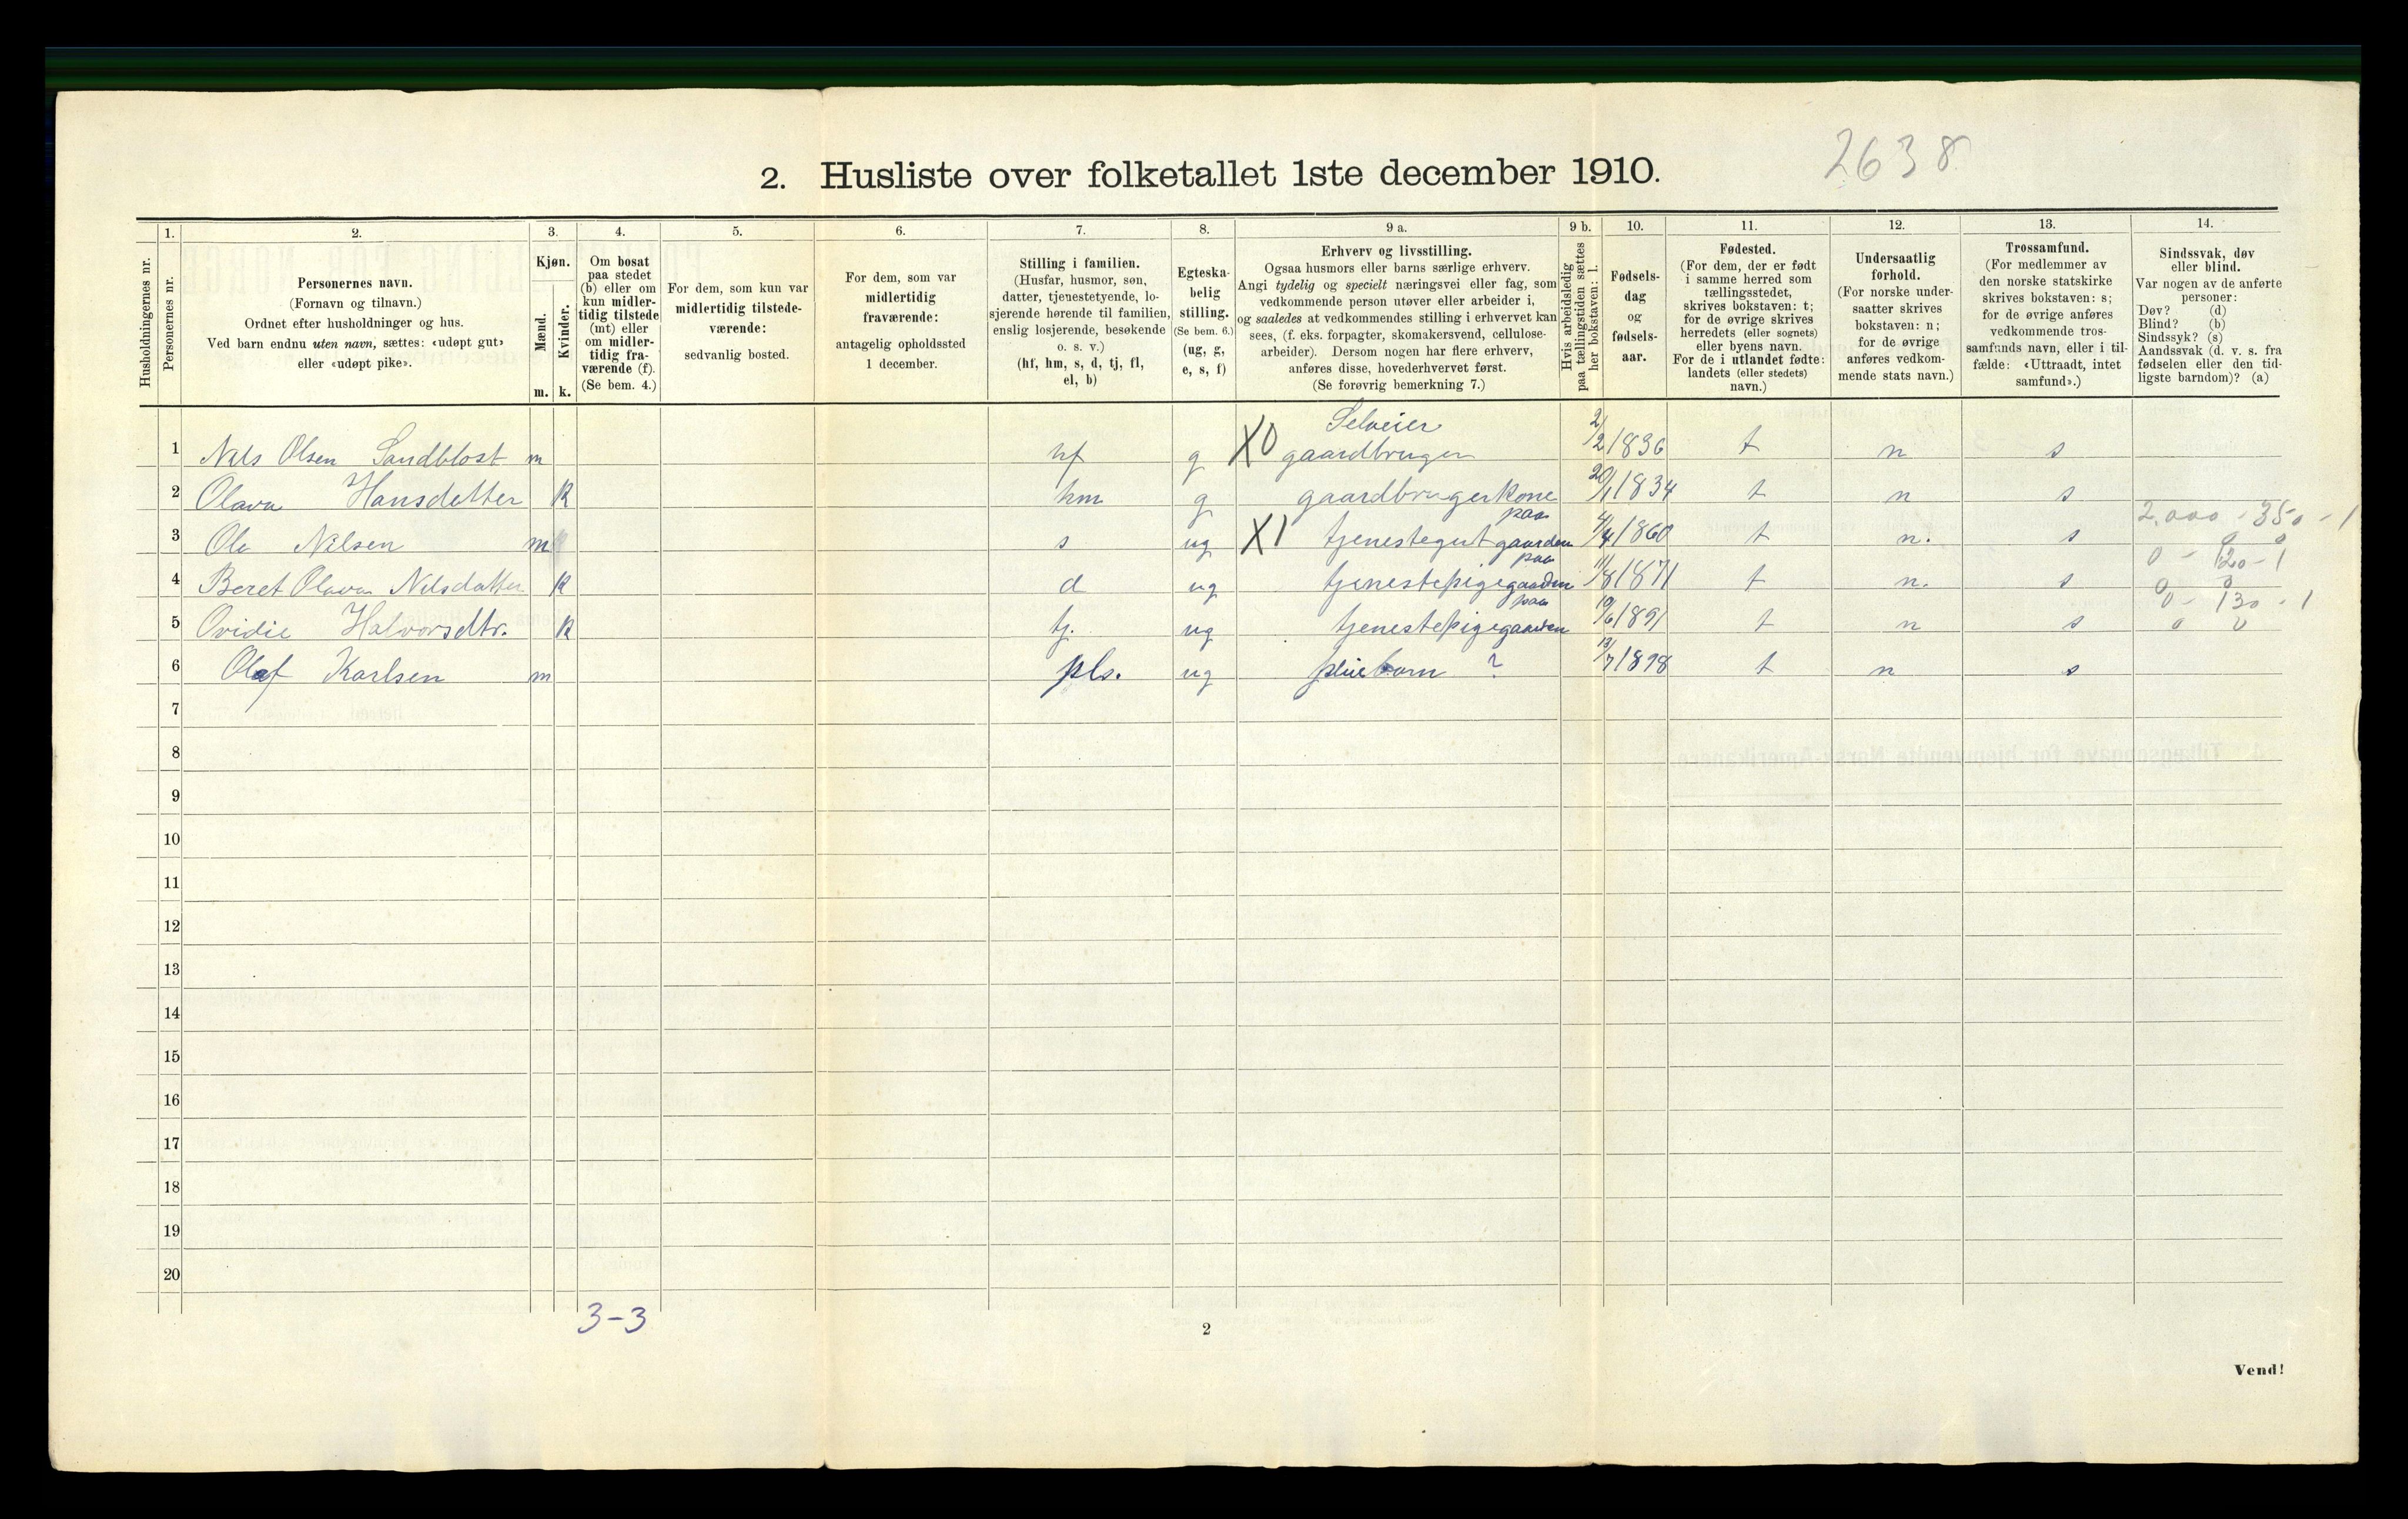 2638
2. Husliste over folketallet 1ste december 1910.
Husholdningernes nr.
1.
Personernes nr.
2.
Personernes navn.
(Fornavn og tilnavn.)
Ordnet efter husholdninger og hus.
Ved barn endnu uten navn, sættes: «udøpt gut»
eller «udøpt pike».
3.
Kjøn.
Mænd.
Kvinder.
m. k.
4.
Om bosat
paa stedet
(b) eller om
kun midler-
tidig tilstede
(mt) eller
om midler-
tidig fra-
værende (f).
(Se bem. 4.)
5.
For dem, som kun var
midlertidig tilstede-
værende:
sedvanlig bosted.
6.
For dem, som var
midlertidig
fraværende:
antagelig opholdssted
1 december.
7.
Stilling i familien.
(Husfar, husmor, søn,
datter, tjenestetyende, lo-
sjerende hørende til familien,
enslig losjerende, besøkende
o. s. v.)
(hf, hm, s, d, tj, fl,
el, b)
8.
Egteska-
belig
stilling.
(Se bem. 6.)
(ug, g,
e, s, f)
9 a.
Erhverv og livsstilling.
Ogsaa husmors eller barns særlige erhverv.
Angi tydelig og specielt næringsvei eller fag, som
vedkommende person utøver eller arbeider i,
og saaledes at vedkommendes stilling i erhvervet kan
sees, (f. eks. forpagter, skomakersvend, cellulose-
arbeider). Dersom nogen har flere erhverv,
anføres disse, hovederhvervet først.
(Se forøvrig bemerkning 7.)
9 b.
Hvis arbeidsledig
paa tællingstiden sættes
her bokstaven: l.
10.
Fødsels-
dag
og
fødsels-
aar.
11.
Fødested.
(For dem, der er født
i samme herred som
tællingsstedet,
skrives bokstaven: t;
for de øvrige skrives
herredets (eller sognets)
eller byens navn.
For de i utlandet fødte:
landets (eller stedets)
navn.)
12.
Undersaatlig
forhold.
(For norske under-
saatter skrives
bokstaven: n;
for de øvrige
anføres vedkom-
mende stats navn.)
13.
Trossamfund.
(For medlemmer av
den norske statskirke
skrives bokstaven: s;
for de øvrige anføres
vedkommende tros-
samfunds navn, eller i til-
fælde: «Uttraadt, intet
samfund».)
14.
Sindssvak, døv
eller blind.
Var nogen av de anførte
personer:
Døv? (d)
Blind? (b)
Sindssyk? (s)
Aandssvak (d. v. s. fra
fødselen eller den tid-
ligste barndom)? (a)
Selveier
1 Nils Olsen Sandblost m hf g X0 gaardbruger 2/2 1836 t n s
2 Olava Hansdatter k hm g gaardbrugerkone 20/1 1834 t n s
paa 2,000 - 350 - 1
3 Ole Nilsen m s ug X1 tjenestegut gaarden 4/4 1860 t n. s 0 0
paa 0 - 120 - 1
4 Beret Olava Nilsdatter k d ug tjenestepige gaarden 11/8 1871 t n. s 0 0
paa 0 - 130 - 1
5 Ovidie Halvorsdtr. k tj. ug tjenestepige gaarden 19/6 1891 t n s 0 0
6 Olaf Karlsen m pls. ug pleiebarn ? 13/7 1898 t n s
7
8
9
10
11
12
13
14
15
16
17
18
19
20
3-3
2
Vend!